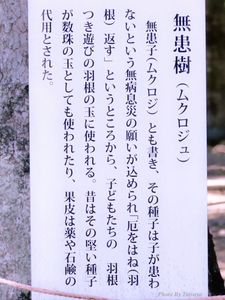 無患樹(ムクロジュ)
無患子(ムクロジ)とも書き、その種子は子が患わ
ないという無病息災の願いが込められ「厄をはね(羽
根)返す」というところから、子どもたちの 羽根
つき遊びの羽根の玉に使われる。昔はその堅い種子
が数珠の玉としても使われたり、果皮は薬や石鹸の
代用とされた。
Photo By Tatsuya